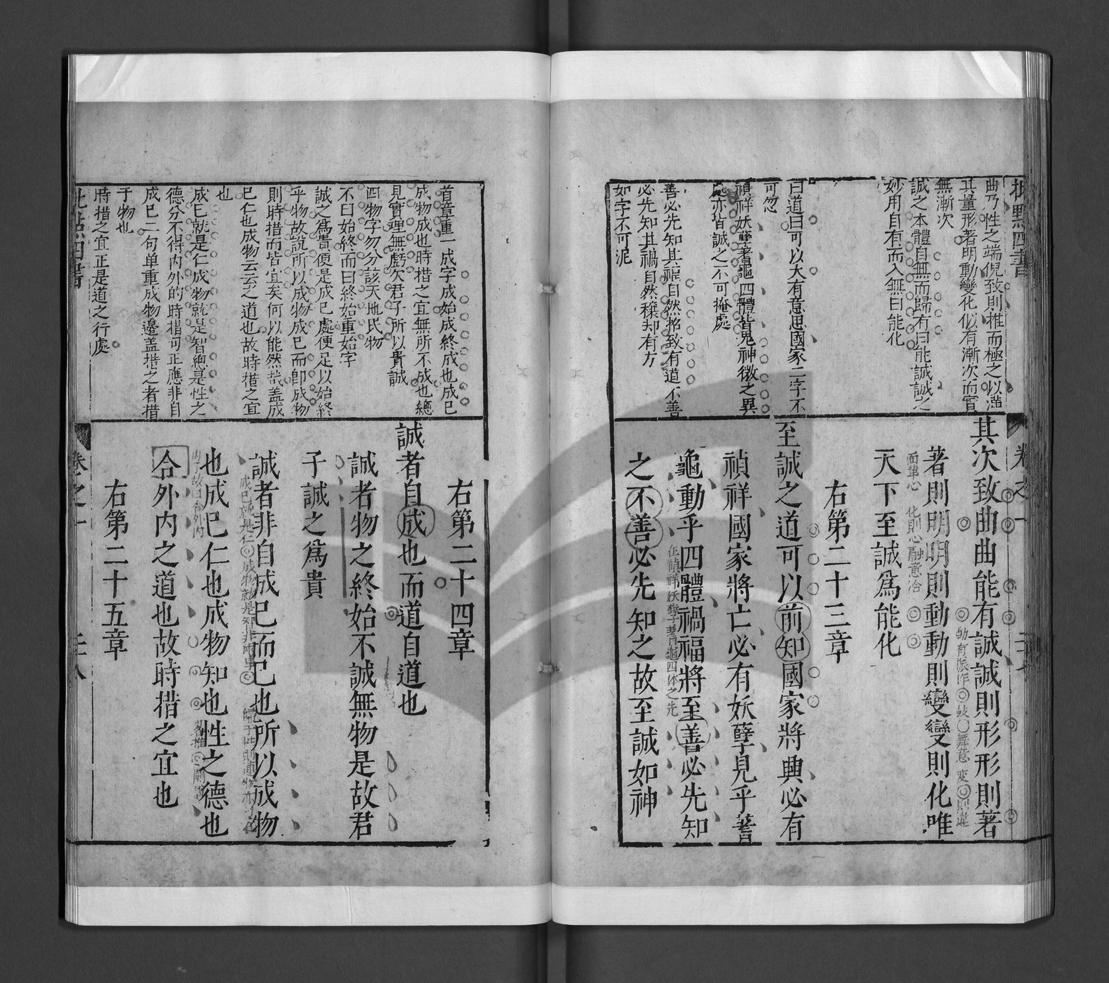 批點四書
曲乃性之端倪致則推而極之以滿
其量形著明動變化似有漸次而實
無漸次
誠之本體自無而歸有曰能誠誠之
妙用自有而入無曰能化
曰道曰可以大有意思國家二字不
可忽
禎祥妖孽蓍龜四體皆鬼神徵之異
處亦皆誠之不可掩處
善必先知其福自然招致有道不善
必先知其禍自然禳却有方
如字不可泥
卷之一
其次致曲曲能有誠誠則形形則著
著則明明則動動則變變則化唯
天下至誠為能化
右第二十三章
至誠之道可以前知國家將興必有
禎祥國家將亡必有妖孽見乎蓍
龜動乎四體禍福將至善必先知
之不善必先知之故至誠如神
首章重一成字成始成終成也成己
成物成也時措之宜無所不成也總
見實理無虧欠君子所以貴誠
四物字勿分該天地民物
不曰始終而曰終始重始字
誠之為貴便是成己處便足以始終
乎物故說所以成物成己而即成物
則時措而皆宜矣何以能然哉蓋成
己仁也成物云云之道也故時措之宜
也
成己就是仁成物就是智總是性之
德分不得內外的時措可正應非自
成己二句单重成物邊盖措之者措
于物也
時措之宜正是道之行處
批點四書
右第二十四章
誠者自成也而道自道也
誠者物之終始不誠無物是故君
子誠之為貴
誠者非自成己而已也所以成物
也成己仁也成物知也性之德也
合外內之道也故時措之宜也
右第二十五章
卷之一